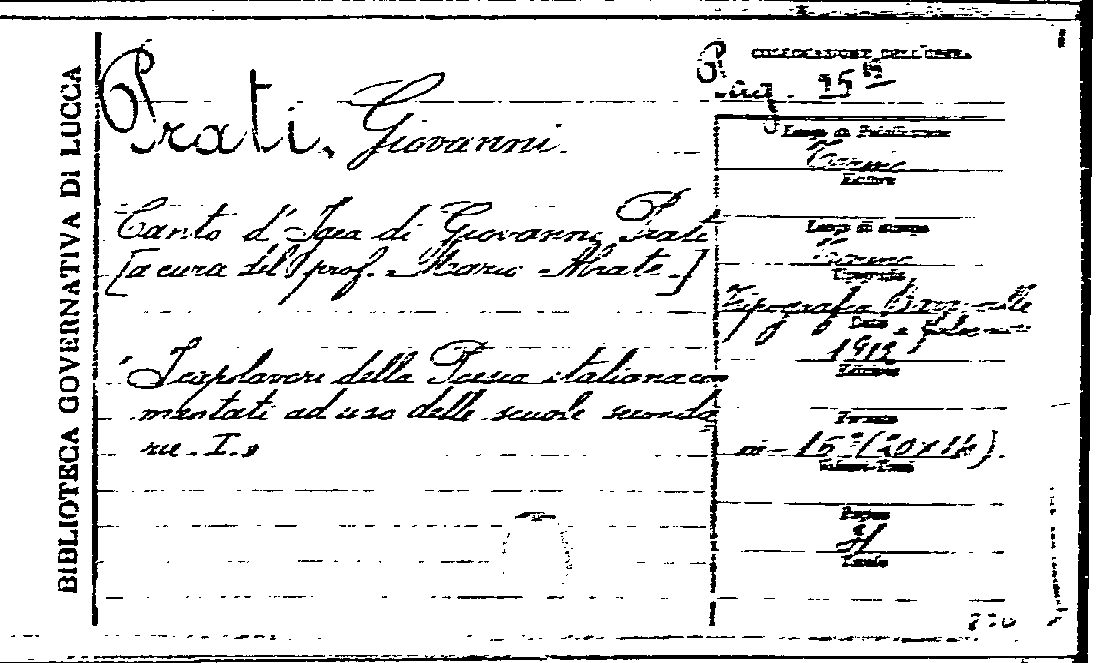 BIBLIOTECA GOVERNATIVA DI LUCCA
Prati, Giovanni.
Canto d'Igea di Giovanni Prati
[a cura del prof. Mario Abrate.]
I capolavori della Poesia italiana com
mentati ad uso delle scuole seconda
rie. I.»
COLLOCAZIONE DELL'OPERA
95
Luogo di Pubblicazione
Torino
Editore
Luogo di stampa
Torino
Tipografia
Tipografia
Data
1912
Edizione
Formato
in-16° (20x14).
Volumi-Tomi
Pagine
31
Tavole